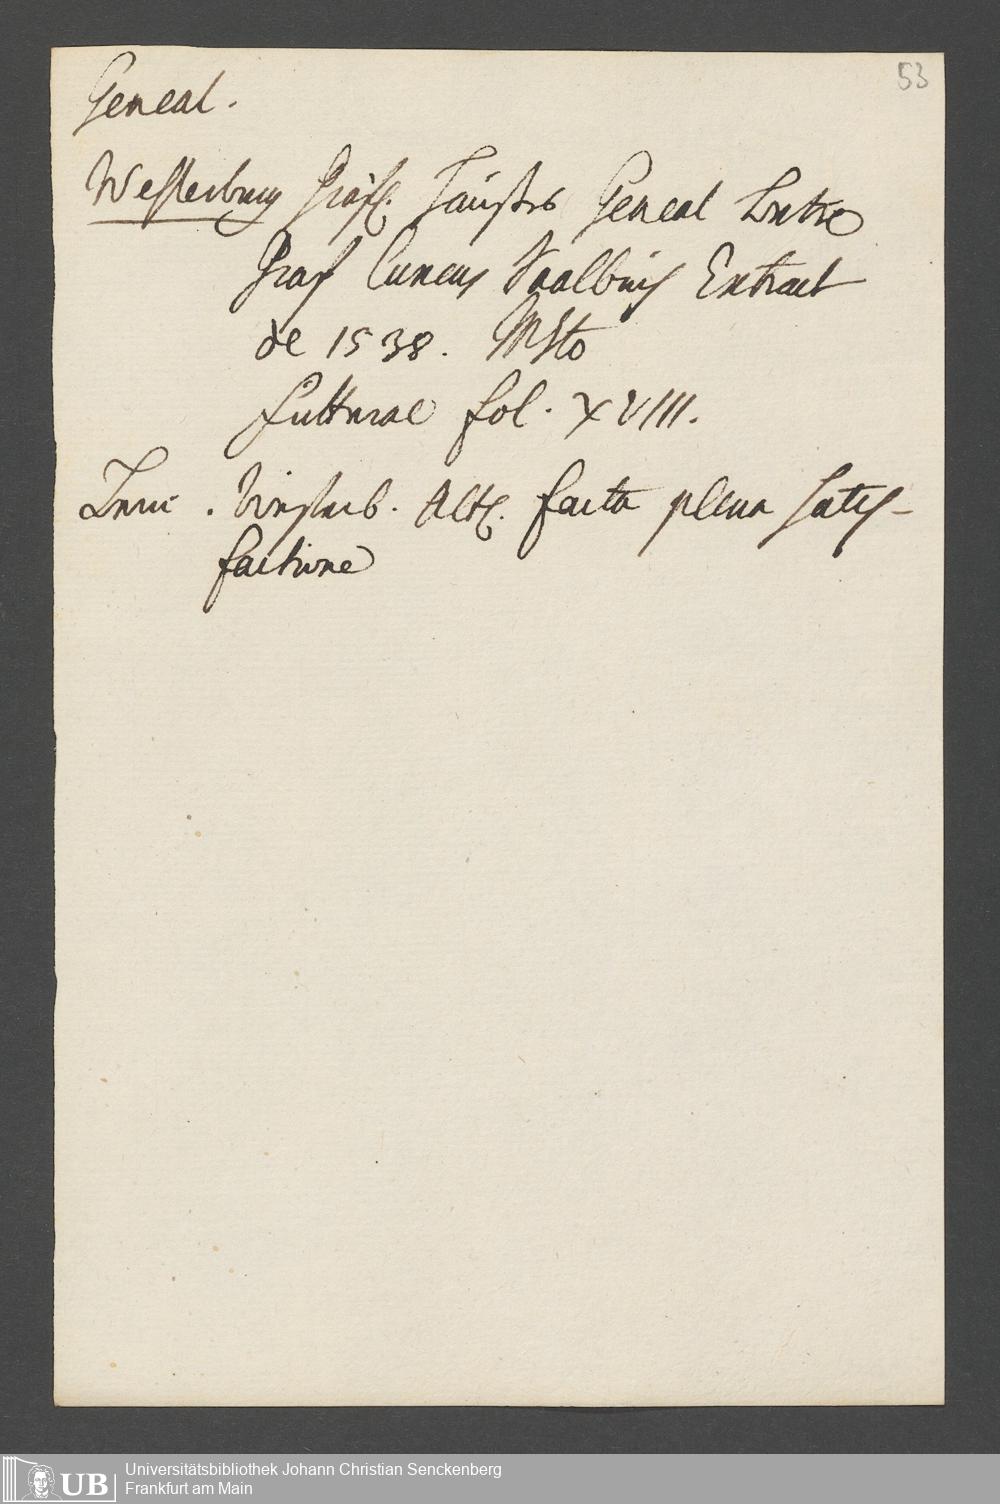 53
Geneal.
Westerburg Gräfl. Hauses Geneal
Graf Extract
de 1538. MSto
futteral fol. XVIII.
. Westerb. facta plena satis-
factione
UB Universitätsbibliothek Johann Christian Senckenberg
Frankfurt am Main